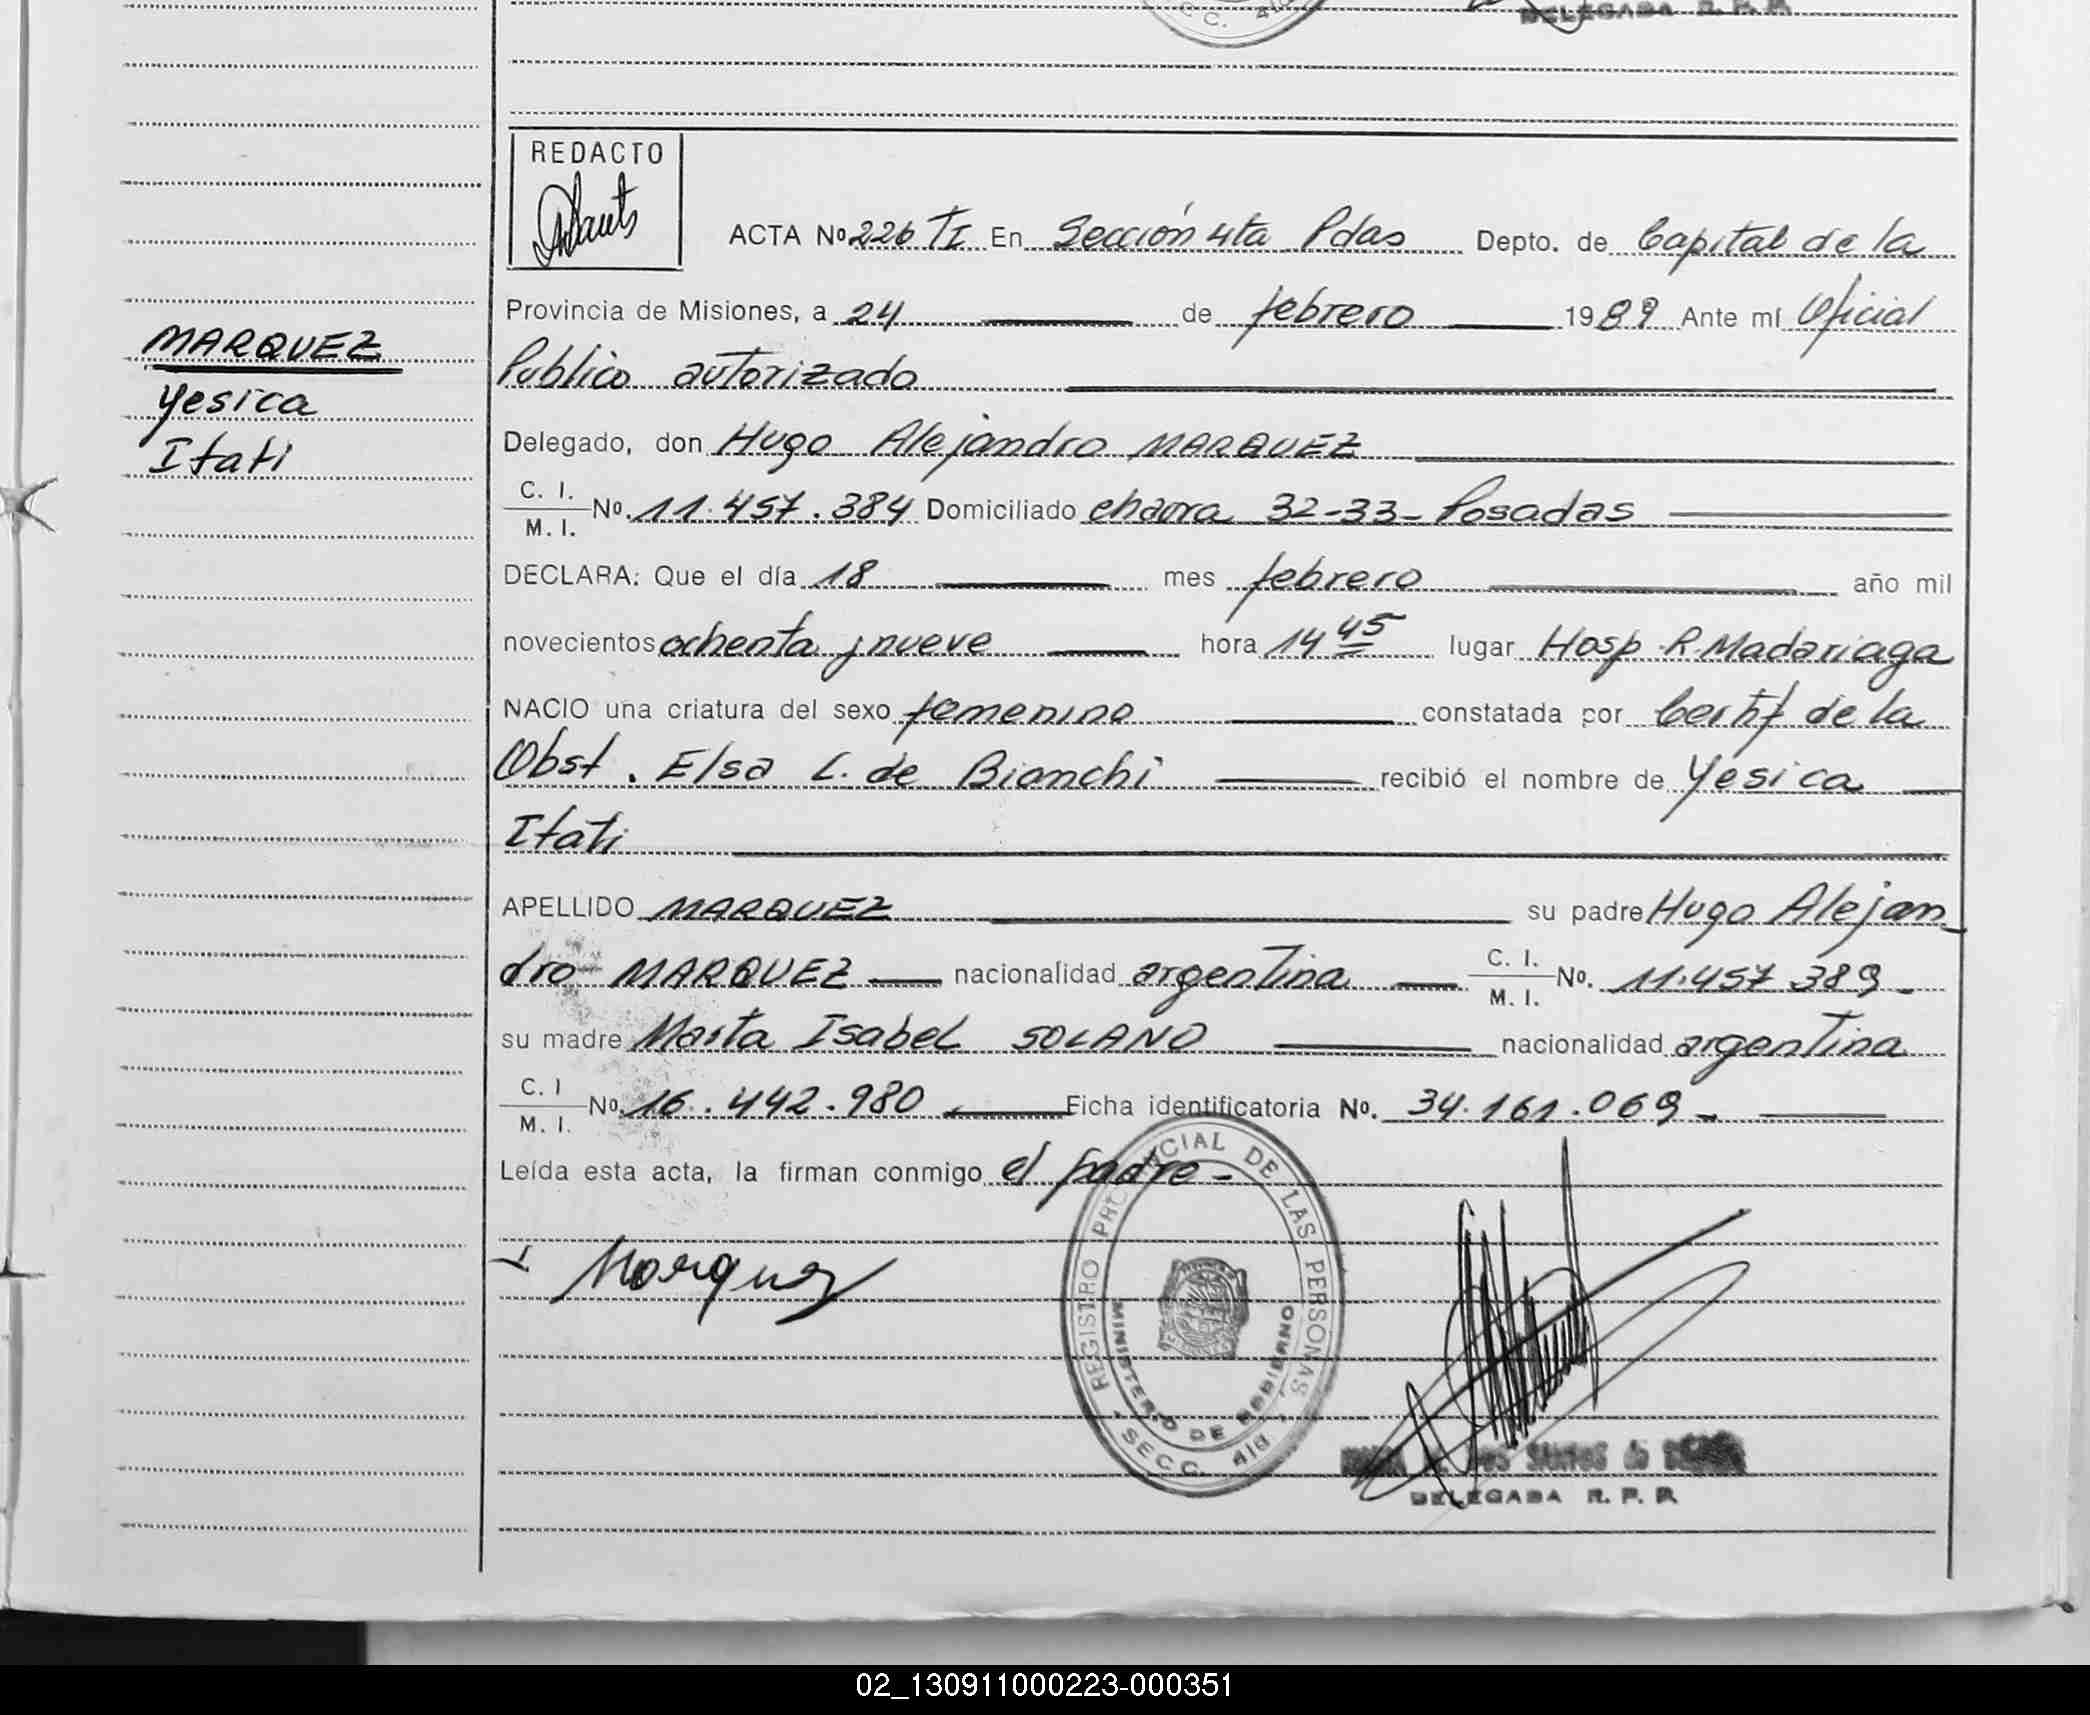 DELEGADA R. P. P.
REDACTO
ACTA Nº 226 TI En Sección 4ta Pdas Depto. de Capital de la
Provincia de Misiones, a 24 de febrero 1989 Ante mí Oficial
Publico autorizado
MARQUEZ
Yesica
Itati
Delegado, don Hugo Alejandro MARQUEZ
C. I.
M. I. Nº. 11.457.384 Domiciliado chacra 32-33- Posadas
DECLARA: Que el día 18 mes febrero año mil
novecientos ochenta y nueve hora 14 45 lugar Hosp. R. Madariaga
NACIO una criatura del sexo femenino constatada por Certif de la
Obst. Elsa L. de Bianchi recibió el nombre de Yesica
Itati
APELLIDO MARQUEZ su padre Hugo Alejan
dro MARQUEZ nacionalidad argentina C. I.
M. I. Nº. 11.457 389-
su madre Marta Isabel SOLANO nacionalidad argentina
C. I
M. I. Nº. 16.442.980 Ficha identificatoria Nº. 34.161.069-
Leída esta acta, la firman conmigo el padre-
Marquez
REGISTRO PROVINCIAL DE LAS PERSONAS
MINISTERIO DE GOBIERNO
SECC. 4ta
DELEGADA R. P. P.
02_130911000223-000351